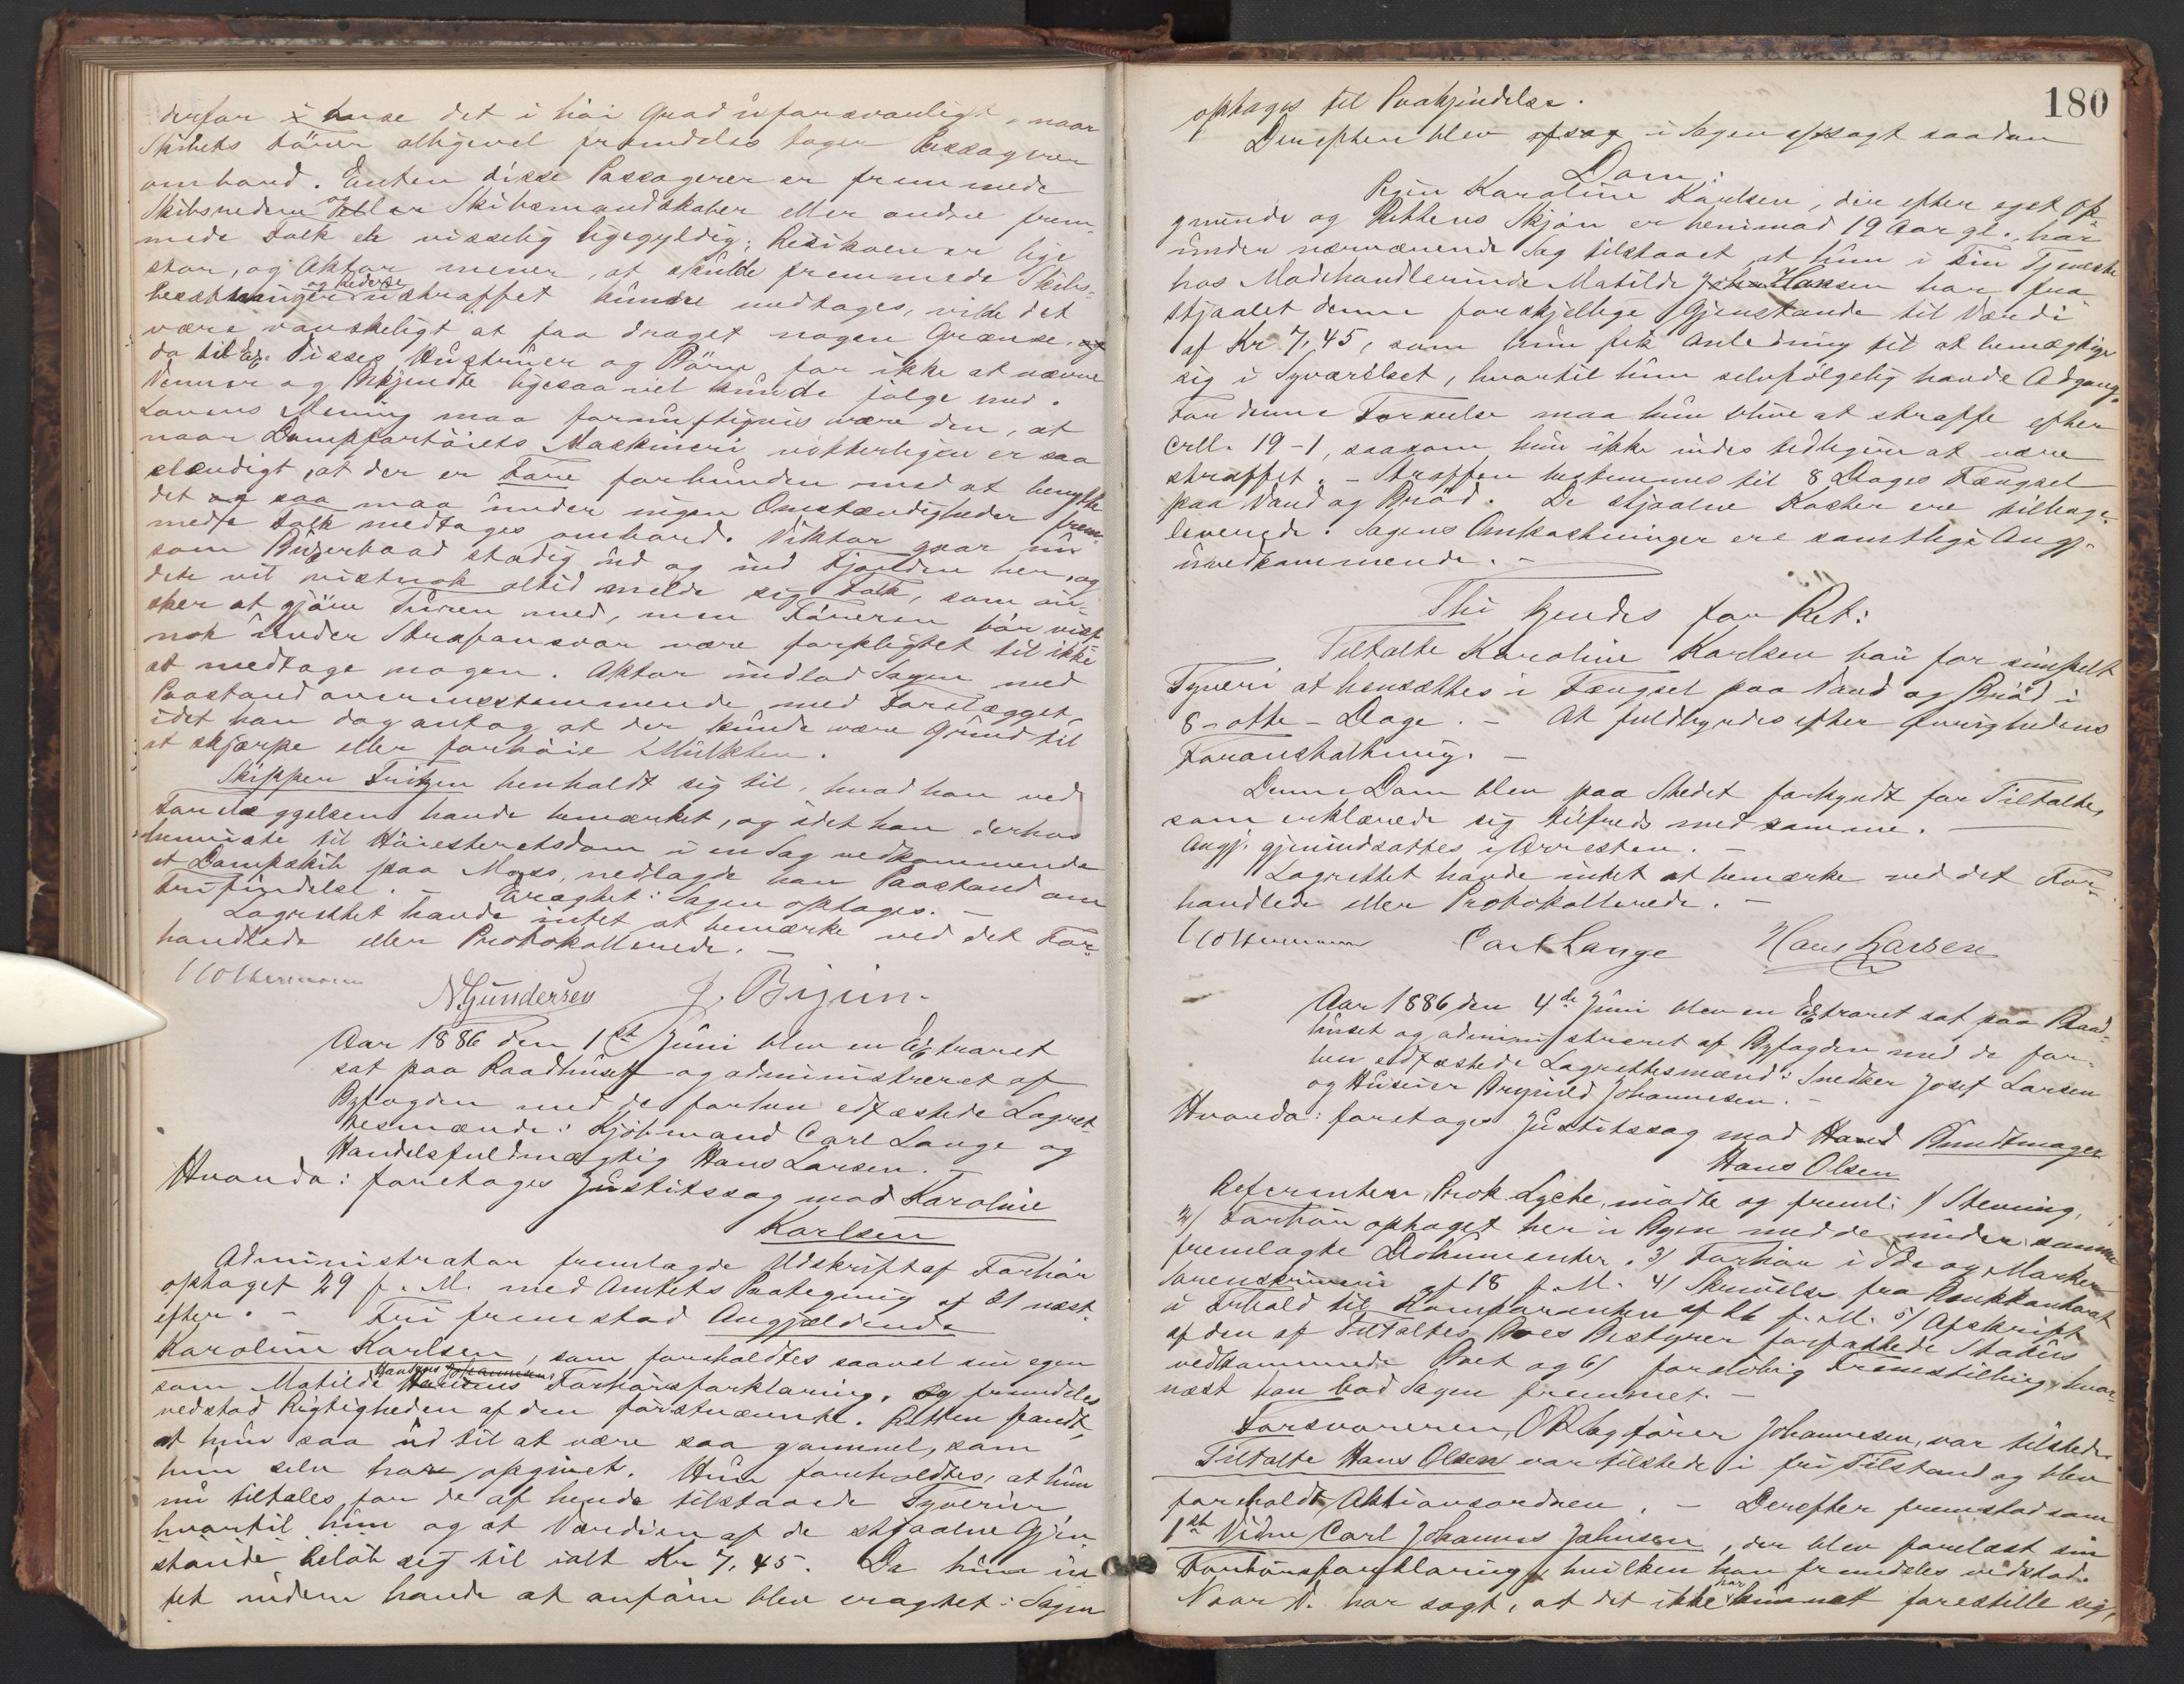 derfor at anse det i höi Grad uforsvarligt, naar
Skibets Förer alligevel fremdeles tager Passagerer
ombord. Enten disse Passagerer er fremmede
Skibsredere og eller Skibsmandskaber eller andre frem-
mede Folk er visselig ligegyldig; Risikoen er lige
stor, og Aktor mener, at skulde fremmede Skibs-
besætninger og Redere ustraffet kunne medtages, vilde det
være vanskeligt at faa draget nogen Grænse, og
da til Ex. disses Hustruer og Börn for ikke at nævne
Venner og Bekjendte ligesaa vel kunde fölge med.
Lovens Mening maa fornuftigvis være den, at
naar Dampfartöiets Maskineri vitterligen er saa
elendigt, at der er Fare forbunden med at benytte
det saa maa under ingen Omstændigheder frem-
mede Folk medtages ombord. Viktor gaar nu
som Buxerbaad stadig ud og ind Fjorden her, og
der vil vistnok altid melde sig Folk, som ön-
sker at gjöre Turen med, men Föreren bör vist-
nok under Strafansvar være forpligtet til ikke
at medtage nogen. Aktor indlod Sagen med
Paastand overensstemmende med Forelægget,
idet han dog antog at der kunde være Grund til
at skjærpe eller forhöie Mulkten.
Skipper Fritzen henholdt sig til, hvad han ved
Forelæggelsen havde bemærket, og idet han derhos
henviste til Höiesteretsdom i en Sag vedkommende
et Dampskib paa Moss, nedlagde han Paastand om
Frifindelse. – Eragtet: Sagen optages. –
Lagrettet havde intet at bemærke ved det For-
handlede eller Protokollerede. –
N Gundersen J. Bijun.
Aar 1886 den 1st Juni blev en Extraret
sat paa Raadhuset og administreret af
Byfogden med de forhen edfæstede Lagret-
tesmænd: Kjöbmand Carl Lange og
Handelsfuldmægtig Hans Larsen. –
Hvorda: foretoges Justitssag mod Karoline
Karlsen
Administrator fremlagde Udskrift af Forhör
optaget 29 f. M. med Amtets Paategning af 31 næst-
efter. – Fri fremstod Angjældende
Karoline Karlsen, som foreholdtes saavel sin egen
som Matilde Hansens Johannesens Forhörsforklaring, og fremdeles
vedstod Rigtigheden af den förstnævnte. Retten fandt,
at hun saa ud til at være saa gammel, som
hun selv har opgivet. Hun foreholdtes, at hun
nu tiltales for de af hende tilstaaede Tyverier
hvortil hun og at Værdien af de stjaalne Gjen-
stande belöb sig til ialt Kr 7,45. Da hun in-
tet videre havde at anföre blev eragtet: Sagen
180
optages til Paakjendelse.
Derefter blev afsag i Sagen afsagt saadan
Dom:
Pigen Karoline Karlsen, der efter eget Op-
givende og Rettens Skjön er henimod 19 Aar gl., har
under nærværende Sag tilstaaet at hun i sin Tjeneste
hos Modehandlerinde Matilde Joh Hansen har fra
stjaalet denne forskjellige Gjenstande til Værdi
af Kr. 7,45, som hun fik Anledning til at bemægtige
sig i Syværelset, hvortil hun selvfölgelig havde Adgang.
For denne Forseelse maa hun blive at straffe efter
Crll. 19-1, saasom hun ikke vides tidligere at være
straffet. – Straffen bestemmes til 8 Dages Fængsel
paa Vand og Bröd. De stjaalne Koster ere tilbage-
leverede. Sagens Omkostninger ere samtlige Angj.
uvedkommende. –
Thi kjendes for Ret:
Tiltalte Karoline Karlsen bör for simpelt
Tyveri at hensættes i Fængsel paa Vand og Bröd i
8 – otte – Dage. – At fuldbyrdes efter Øvrighedens
Foranstaltning. –
Denne Dom blev paa Stedet forkyndt for Tiltalte,
som erklærede sig tilfreds med samme. –
Angj. gjenindsattes i Arresten. –
Lagrettet havde intet at bemærke ved det For-
handlede eller Protokollerede. –
Carl Lange Hans Larsen
Aar 1886 den 4de Juni blev en Extraret sat paa Raad-
huset og administreret af Byfogden med de for-
hen edfæstede Lagrettesmænd: Snedker Josef Larsen
og Huseier Brynild Johannesen. –
Hvorda: foretoges Justitssag mod Hand Bundtmager
Hans Olsen
Referenten, Prok. Lyche, mödte og freml: 1/ Stevning,
2/ Forhör optaget her i Byen med de under samme
fremlagte Dokumenter. 3/ Forhör i Ide og Marker
Sorenskriveri af 18 f. M. 4/ Skrivelse fra
i Frhald til Komparenten af 26 f. M. 5/ Afskrift
af den af Tiltaltes Boes Bestyrer forfattede Status
vedkommende Boet og 6/ foreløbig Fremstilling, hvor-
næst han bad Sagen fremmet. –
Forsvareren, ORSagförer Johannesen, var tilstede.
Tiltalte Hans Olsen var tilstede i fri Tilstand og blev
foreholdt Aktionsordren. – Derefter fremstod som
1st Vidne Carl Johannes Johnsen, der blev forelæst sin
Forhörsforklaring, hvilken han fremdeles vedstod.
Naar V. har sagt, at det ikke har kunnet forestille sig,